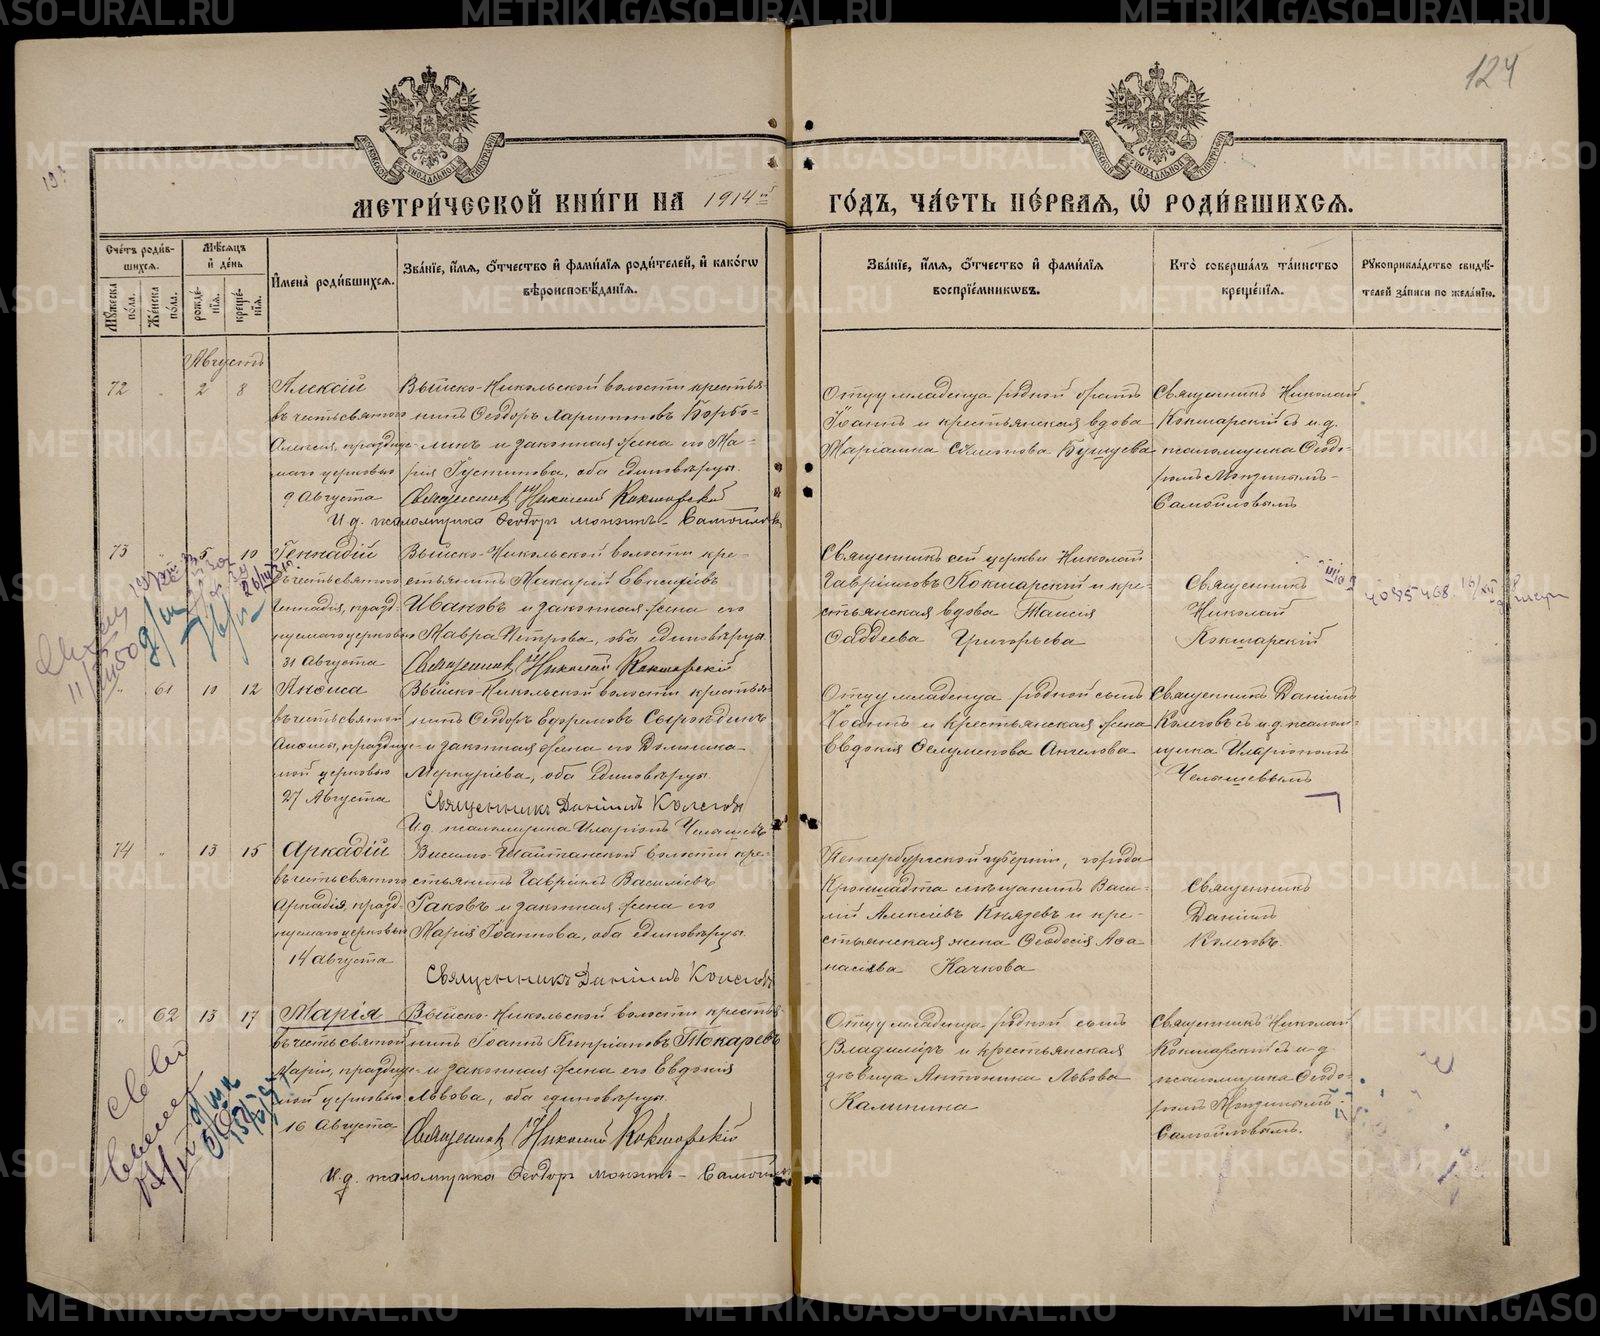 124
МЕТРИ́ЧЕСКОЙ КНИ́ГИ НА 1914й ГО́ДЪ, ЧА́СТЬ ПЕ́РВАЯ, Ѡ РОДИ́ВШИХСЯ.
Сче́тъ роди́в-
шихся.
Мѣ́сяцъ
и́ де́нь
Му́жеска по́ла.
Же́нска по́ла.
рожде́-
нїя.
креще́-
нїя.
И҆мена̀ роди́вшихся.
Зва́нїе, и҆́мя, ѻ҆́тчество и҆ фами́лїя роди́телей, и҆ како́гѡ
вѣроисповѣ́данїя.
Зва́нїе, и҆́мя, ѻ҆́тчество и҆ фами́лїя
воспрїе́мникѡвъ.
Кто̀ соверша́лъ та́инство
креще́нїя.
Рукоприкла́дство свидѣ́-
телей за́писи по жела́нїю.
Августъ
72 " 2 8
Алексій
въ честь святого
Алексія, празднуе-
маго церковью
9 Августа
Выйско-Никольской волости крестья-
нинъ Ѳеодоръ Харитоновъ Борбо-
линъ и законная жена его Ма-
рія Густинова, оба единовѣрцы.
Священникъ Николай Кокшарскій
И.д. псаломщика Ѳеодоръ Мокинъ-Самойловъ
Отцу младенца родной братъ
Іоаннъ и крестьянская вдова
Маріамна Сѵмеонова Бушуева
Священникъ Николай
Кокшарскій съ и.д.
псаломщика Ѳеодо-
ромъ Мокинымъ-
Самойловымъ
73 " 5 10
Геннадій
въ честь святого
Геннадія, празд-
нуемаго церковью
31 Августа
Выйско-Никольской волости кре-
стьянинъ Макарій Евѳиміевъ
Ивановъ и законная жена его
Мавра Петрова, оба единовѣрцы.
Священникъ Николай Кокшарскій
Священникъ сей церкви Николай
Гавріиловъ Кокшарскій и кре-
стьянская вдова Таисія
Ѳаддеева Григорьева
Священникъ
Николай
Кокшарскій
" 61 10 12
Анѳиса
въ честь святой
Анѳисы, празднуе-
мой церковью
27 Августа
Выйско-Никольской волости крестья-
нинъ Ѳеодоръ Ефремовъ Сыроѣдинъ
и законная жена его Домника
Меркуріева, оба единовѣрцы.
Священникъ Даніилъ Колеговъ
И.д. псаломщика Иларіонъ Челашевъ
Отцу младенца родной сынъ
Іоаннъ и крестьянская жена
Евдокія Ѳелуменова Ангелова
Священникъ Даніилъ
Колеговъ съ и.д. псалом-
щика Иларіономъ
Челашевымъ
74 " 13 15
Аркадій
въ честь святого
Аркадія, празд-
нуемаго церковью
14 Августа
Висимо-Шайтанской волости кре-
стьянинъ Гавріилъ Василіевъ
Раковъ и законная жена его
Марія Іоаннова, оба единовѣрцы.
Священникъ Даніилъ Колеговъ
Петербургской губерніи, города
Кронштадта мѣщанинъ Васи-
лій Алексіевъ Князевъ и кре-
стьянская жена Ѳеодосія Аѳа-
насіева Качкова
Священникъ
Даніилъ
Колеговъ.
" 62 13 17
Марія
въ честь святой
Маріи, празднуе-
мой церковью
16 Августа
Выйско-Никольской волости крестья-
нинъ Іоаннъ Кипріановъ Токаревъ
и законная жена его Евдокія
Львова, оба единовѣрцы.
Священникъ Николай Кокшарскій
И.д. псаломщика Ѳеодоръ Мокинъ-Самойловъ
Отцу младенца родной сынъ
Владиміръ и крестьянская
дѣвица Антонина Львова
Калинина
Священникъ Николай
Кокшарскій съ и.д.
псаломщика Ѳеодо-
ромъ Мокинымъ-
Самойловымъ.
METRIKI.GASO-URAL.RU